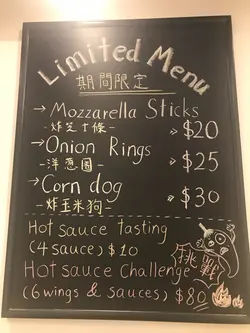 Limited Menu
期間限定
→Mozzarella Sticks
-炸芝士條-
» $20
→Onion Rings
-洋蔥圈-
» $25
→Corn dog
-炸玉米狗-
» $30
Hot sauce tasting
(4 sauce) $10
Hot sauce Challenge
(6 wings & sauces) $80
挑戰